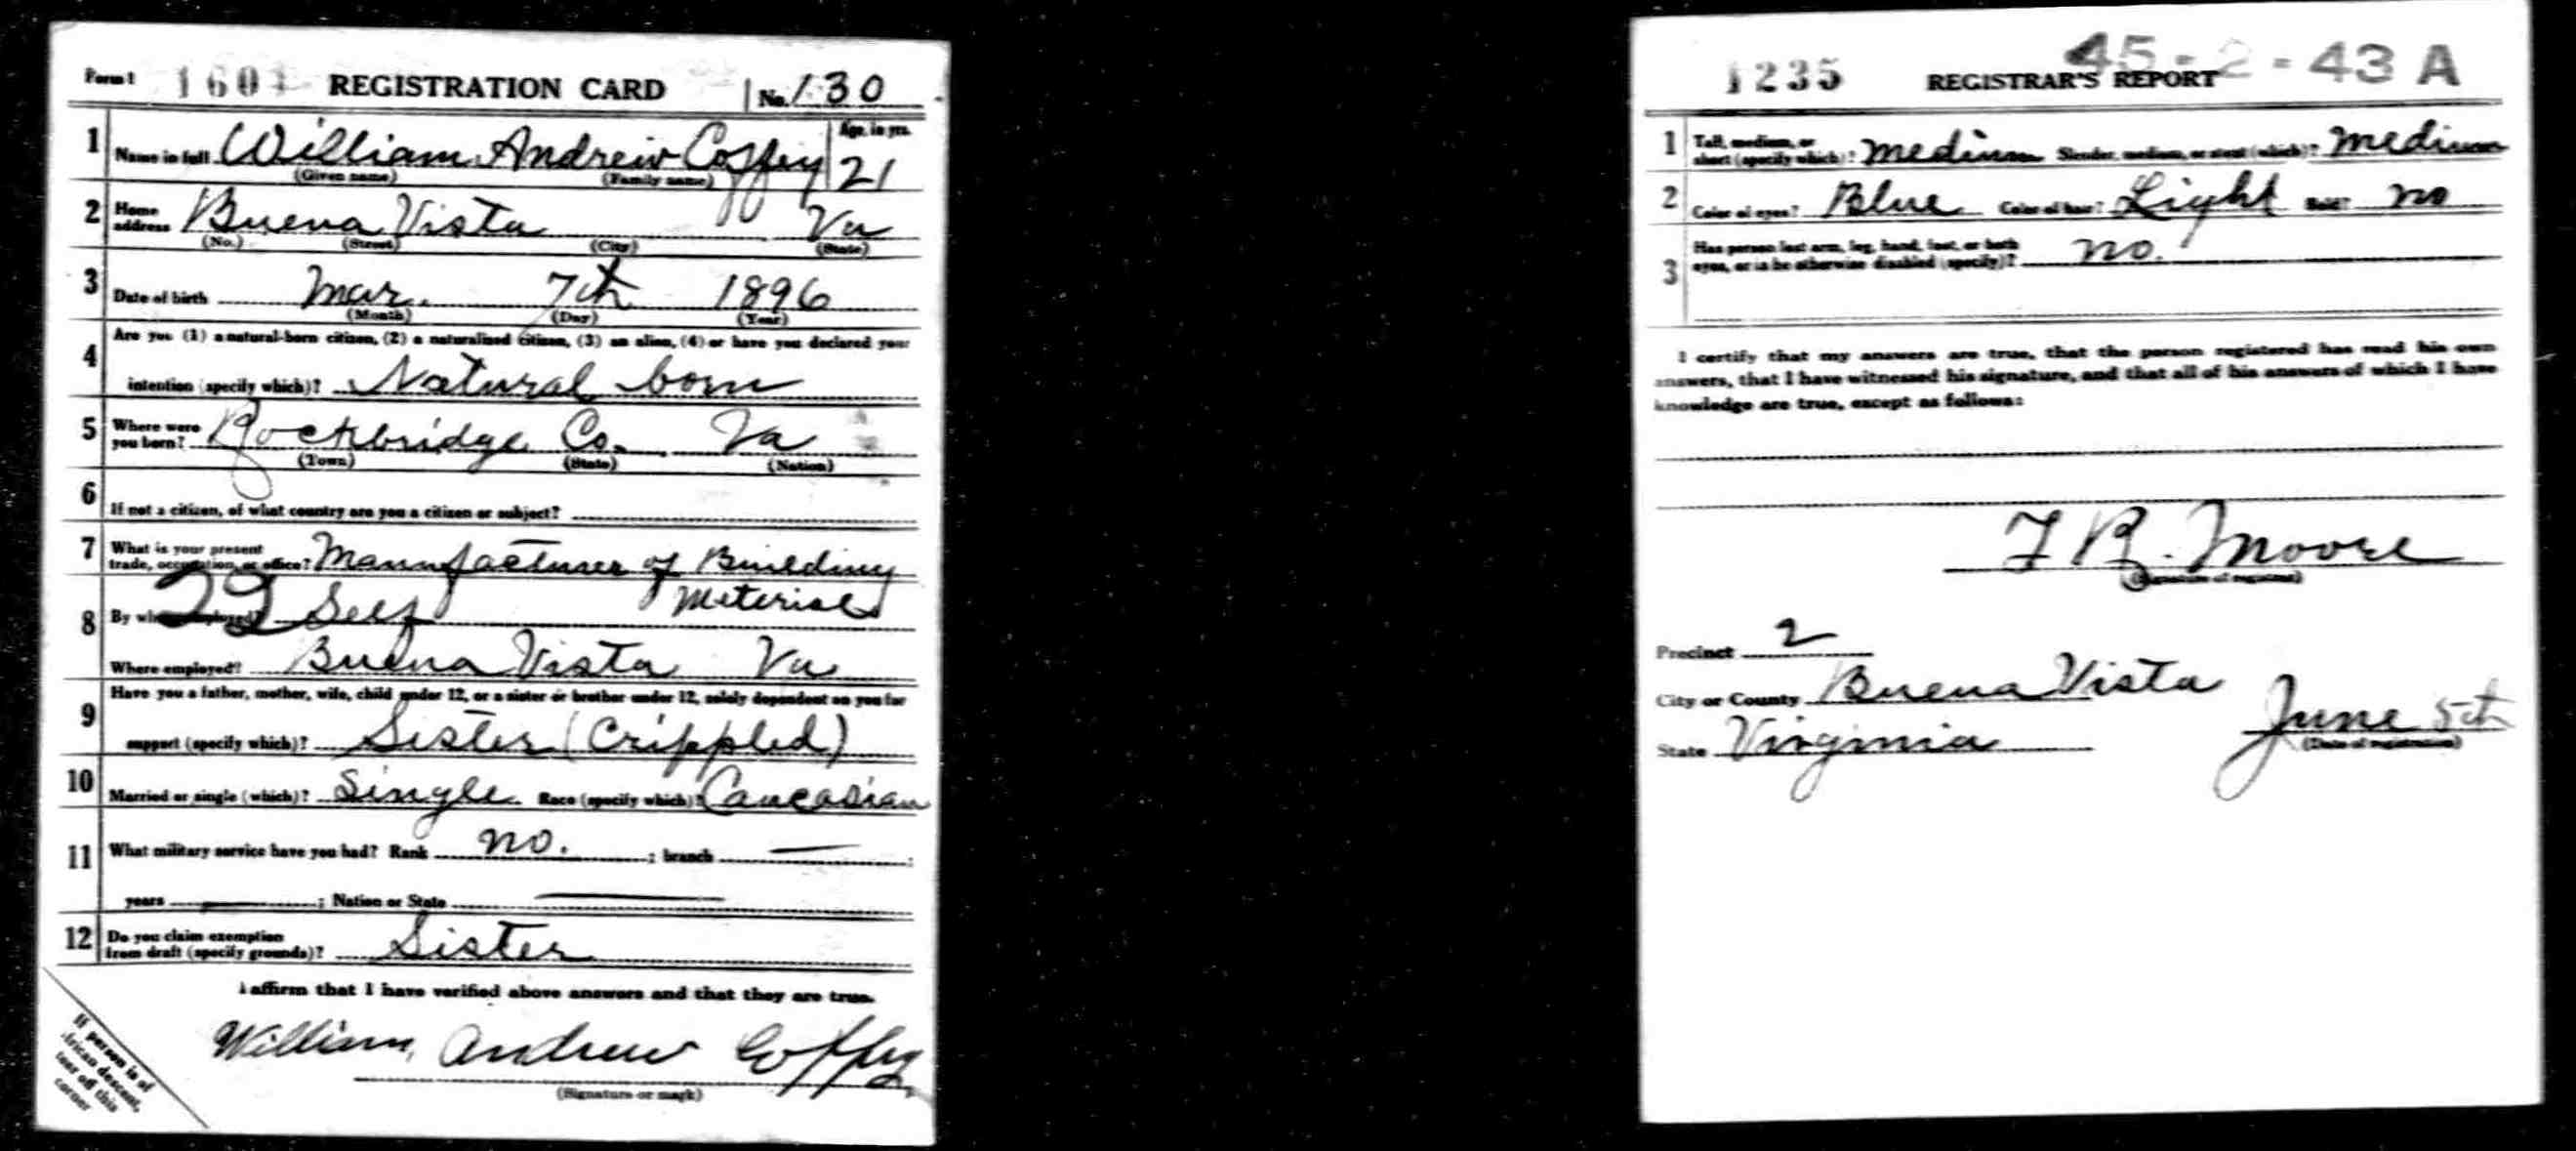 Form 1 1601 REGISTRATION CARD No. 130
1 Name in full William Andrew Coffey Age, in yrs. 21
(Given name) (Family name)
2 Home address Buena Vista Va
(No.) (Street) (City) (State)
3 Date of birth Mar. 7th 1896
(Month) (Day) (Year)
4 Are you (1) a natural-born citizen, (2) a naturalized citizen, (3) an alien, (4) or have you declared your
intention (specify which)? Natural born
5 Where were you born? Rockbridge Co. Va
(Town) (State) (Nation)
6 If not a citizen, of what country are you a citizen or subject?
7 What is your present trade, occupation, or office? Manufacturer of Building
Meterials
29
8 By whom employed? Self
Where employed? Buena Vista Va
9 Have you a father, mother, wife, child under 12, or a sister or brother under 12, solely dependent on you for
support (specify which)? Sister (Crippled)
10 Married or single (which)? Single Race (specify which)? Caucasian
11 What military service have you had? Rank no. ; branch — ;
years — ; Nation or State —
12 Do you claim exemption from draft (specify grounds)? Sister
I affirm that I have verified above answers and that they are true.
William Andrew Coffey
(Signature or mark)
If person is of
African descent,
tear off this
corner
45-2-43 A
1235 REGISTRAR'S REPORT
1 Tall, medium, or short (specify which)? medium Slender, medium, or stout (which)? medium
2 Color of eyes? Blue Color of hair? Light Bald? no
3 Has person lost arm, leg, hand, foot, or both eyes, or is he otherwise disabled (specify)? no.
I certify that my answers are true, that the person registered has read his own
answers, that I have witnessed his signature, and that all of his answers of which I have
knowledge are true, except as follows:
F R. Moore
(Signature of registrar)
Precinct 2
City or County Buena Vista
State Virginia June 5th
(Date of registration)